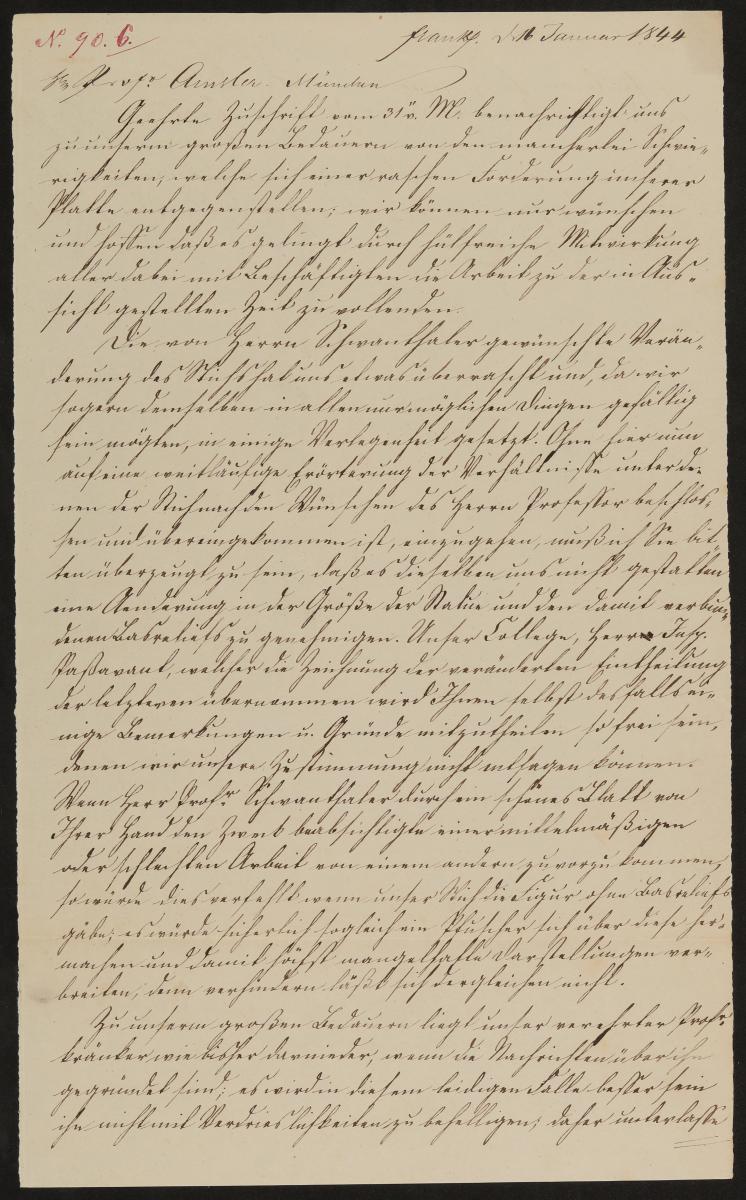 N. 90. 6.
Frankf. d. 16 Januar 1844
Hr. Profr. Amsler. München
Geehrte Zuschrift vom 31 v. M. benachrichtigt uns
zu unserm großen Bedauern von den mancherlei Schwie-
rigkeiten, welche sich einer raschen Förderung unserer
Platte entgegenstellen; wir können nur wünschen
und hoffen daß es gelingt durch hülfreiche Mitwirkung
aller dabei mit Beschäftigten die Arbeit zu der in Aus-
sicht gestellten Zeit zu vollenden.
Die von Herrn Schwanthaler gewünschte Verän-
derung des Stichs hat uns etwas überrascht und, da wir
so gern demselben in allen nur möglichen Dingen gefällig
sein mögten, in einige Verlegenheit gesetzt. Ohne hier nun
auf eine weitläufige Erörterung der Verhältnisse unter de-
nen der Stich nach den Wünschen des Herrn Professor beschlos-
sen und übereingekommen ist, einzugehen, muß ich Sie bit-
ten überzeugt zu sein, daß es dieselben uns nicht gestatten
eine Aenderung in der Größe der Statue und den damit verbun-
denen Basreliefs zu genehmigen. Unser College, Herr Insp.
Passavant, welcher die Zeichnung der veränderten Eintheilung
der letzteren übernommen wird Ihnen selbst desfalls ei-
nige Bemerkungen u. Gründe mitzutheilen so frei sein,
denen wir unsere Zustimmung nicht versagen können.
Wenn Herr Profr. Schwanthaler durch ein schönes Blatt von
Ihrer Hand den Zweck beabsichtigte einer mittelmäßigen
oder schlechten Arbeit von einem andern zuvorzukommen,
so würde dies verfehlt wenn unser Stich die Figur ohne Basreliefs
gäbe; es würde sicherlich sogleich ein Pfuscher sich über diese her-
machen und damit höchst mangelhafte Darstellungen ver-
breiten, denn verhindern läßt sich dergleichen nicht.
Zu unserm großen Bedauern liegt unser verehrter Profr.
kränker wie bisher darnieder, wenn die Nachrichten über ihn
gegründet sind; es wird in diesem leidigen Falle besser sein
ihn nicht mit Verdrieslichkeiten zu behelligen; daher unterlasse